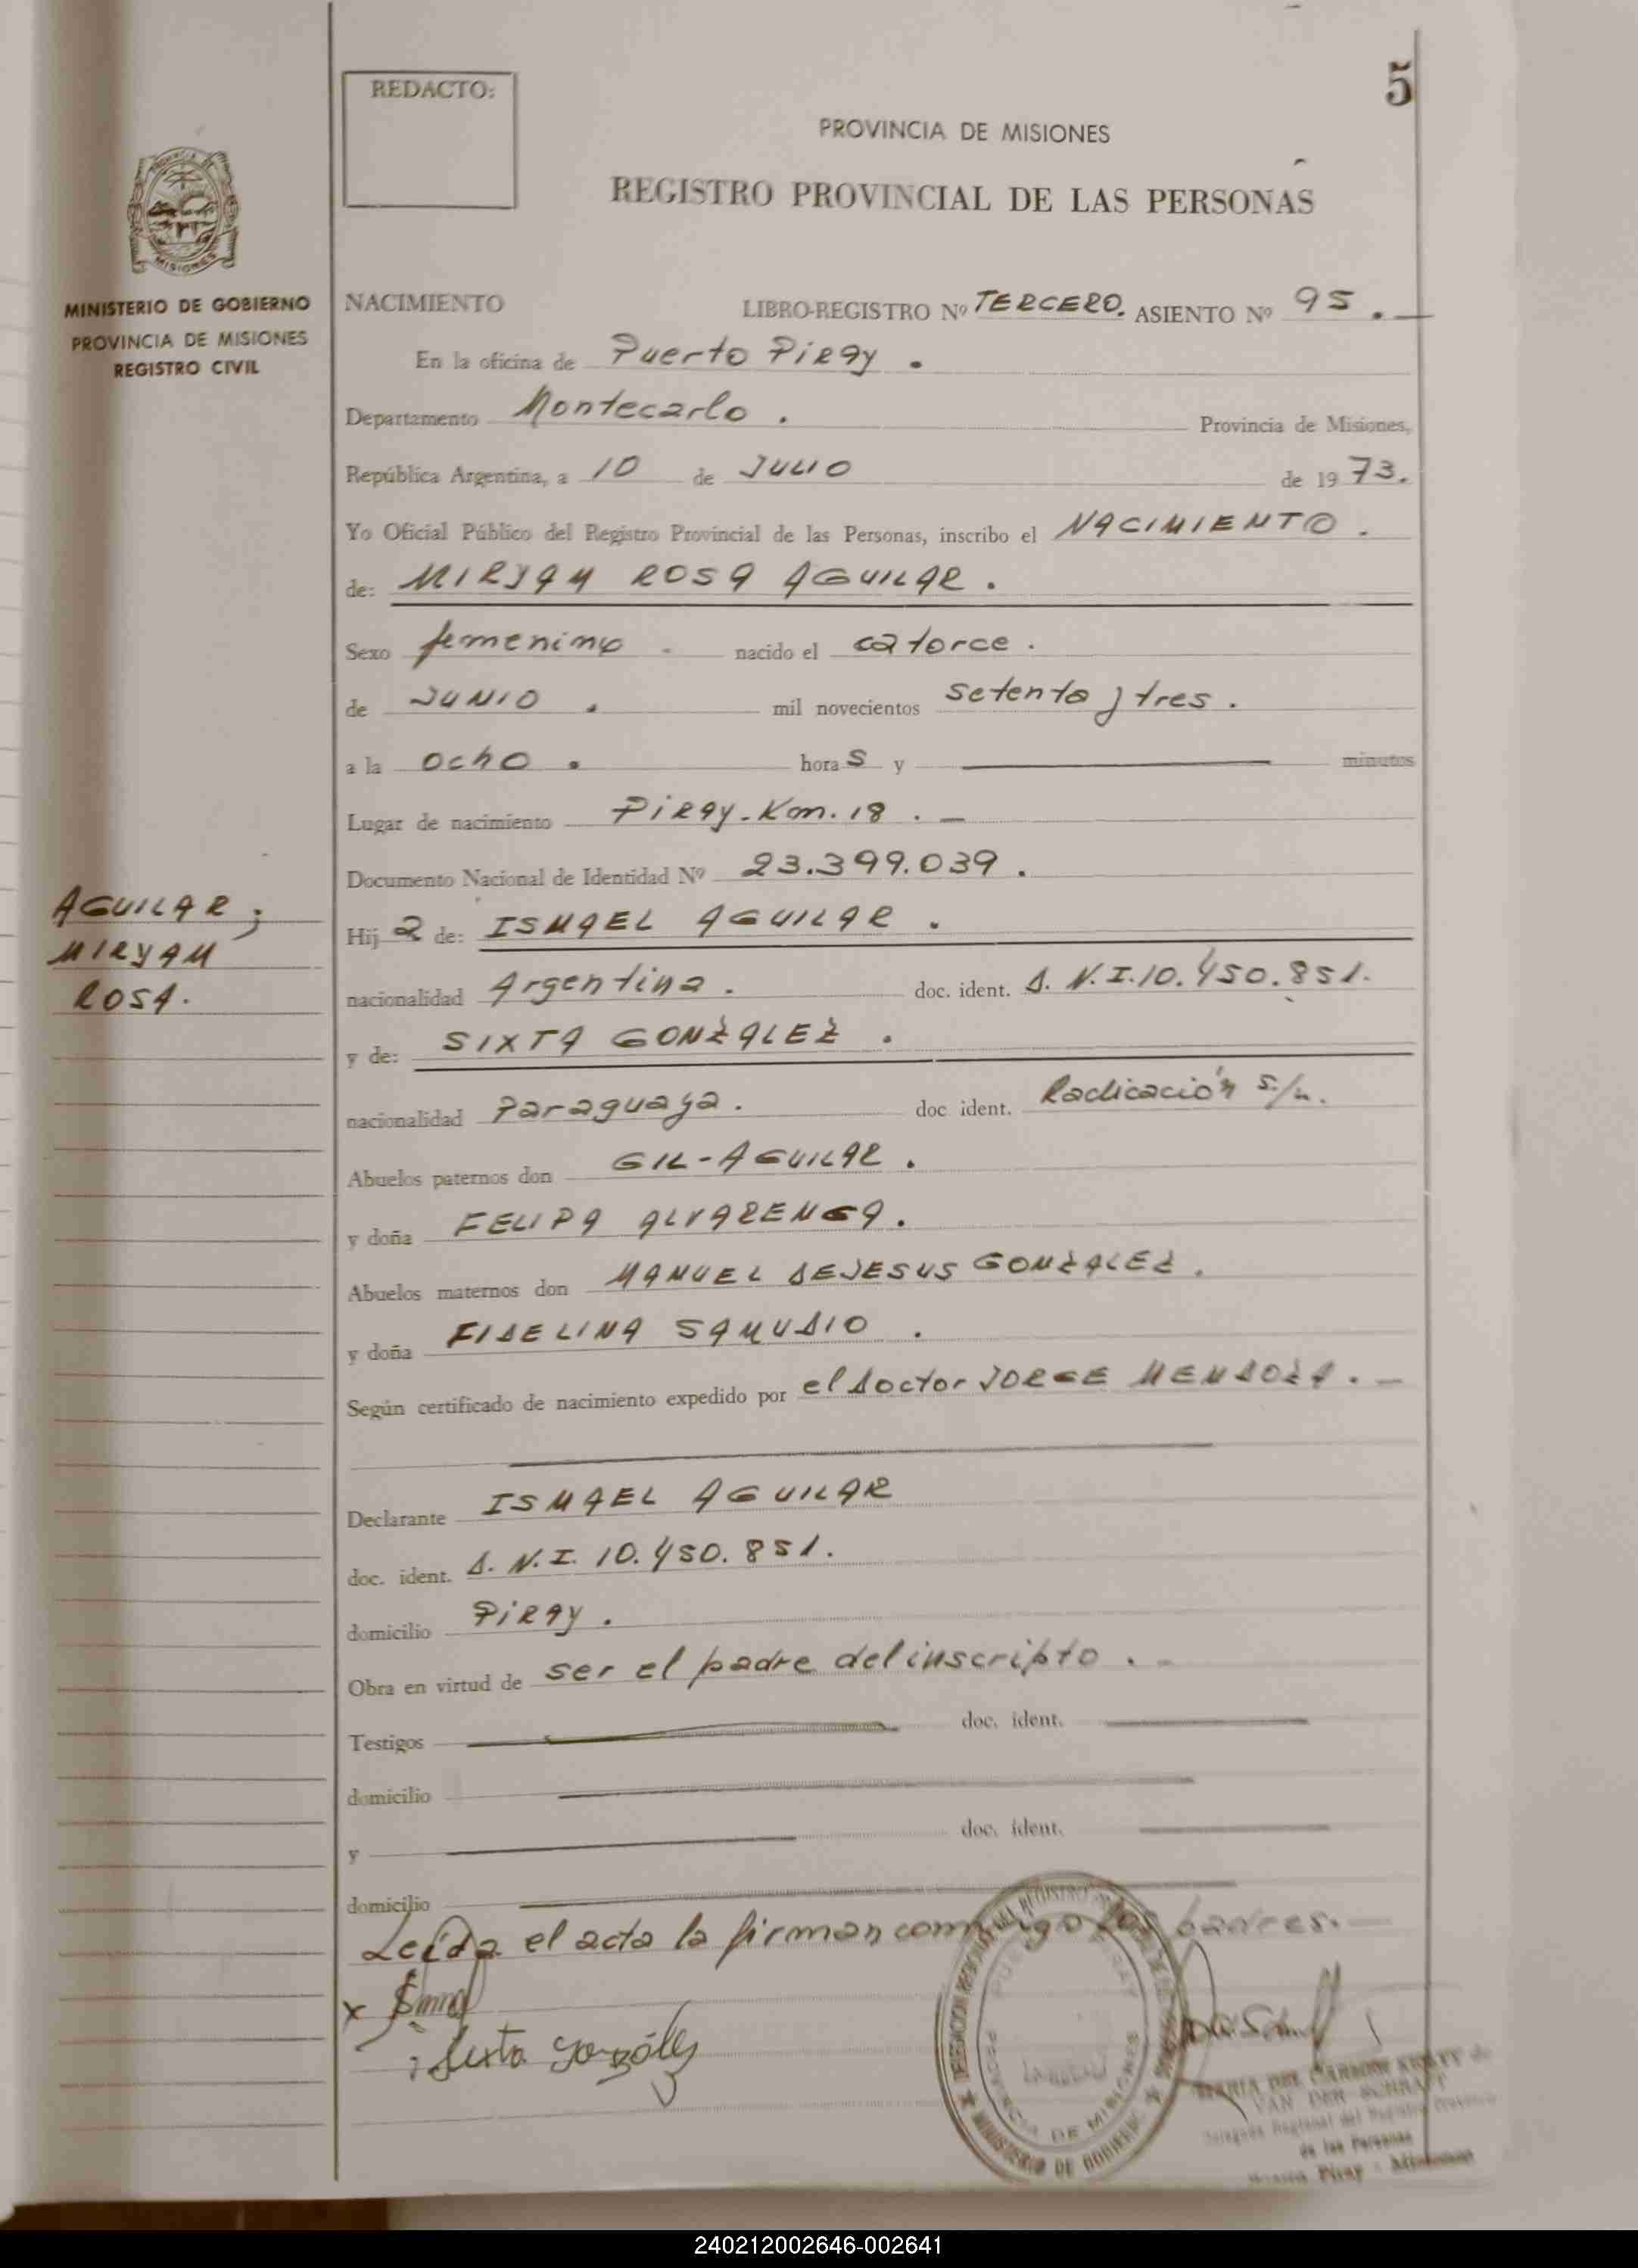 5
REDACTO:
PROVINCIA DE MISIONES
REGISTRO PROVINCIAL DE LAS PERSONAS
MISIONES
MINISTERIO DE GOBIERNO
PROVINCIA DE MISIONES
REGISTRO CIVIL
NACIMIENTO LIBRO-REGISTRO Nº TERCERO. ASIENTO Nº 95.
En la oficina de Puerto Piray.
Departamento Montecarlo. Provincia de Misiones,
República Argentina, a 10 de JULIO de 1973.
Yo Oficial Público del Registro Provincial de las Personas, inscribo el NACIMIENTO.
de: MIRYAM ROSA AGUILAR.
Sexo femenino - nacido el catorce.
de JUNIO. mil novecientos setenta y tres.
a la ocho. horas y minutos
Lugar de nacimiento Piray-Km. 18. —
Documento Nacional de Identidad Nº 23.399.039.
AGUILAR;
MIRYAM
ROSA.
Hija de: ISMAEL AGUILAR.
nacionalidad Argentina. doc. ident. D.N.I. 10.450.851.
y de: SIXTA GONZALEZ.
nacionalidad Paraguaya. doc ident. Radicación s/n.
Abuelos paternos don GIL-AGUILAR.
y doña FELIPA ALVARENGA.
Abuelos maternos don MANUEL DEJESUS GONZALEZ.
y doña FIDELINA SAMUDIO.
Según certificado de nacimiento expedido por el Doctor JORGE MENDOZA. —
Declarante ISMAEL AGUILAR
doc. ident. D.N.I. 10.450.851.
domicilio PIRAY.
Obra en virtud de ser el padre del inscripto. -
Testigos doc. ident.
domicilio
y doc. ident.
domicilio
Leída el acta la firman conmigo los padres. —
x
Sixta González
MINISTERIO DE GOBIERNO
PROVINCIA DE MISIONES
MARIA DEL CARMEN
VAN DER SCHRAFT
Delegada Regional del Registro Provincial
de las Personas
Piray - Misiones
240212002646-002641